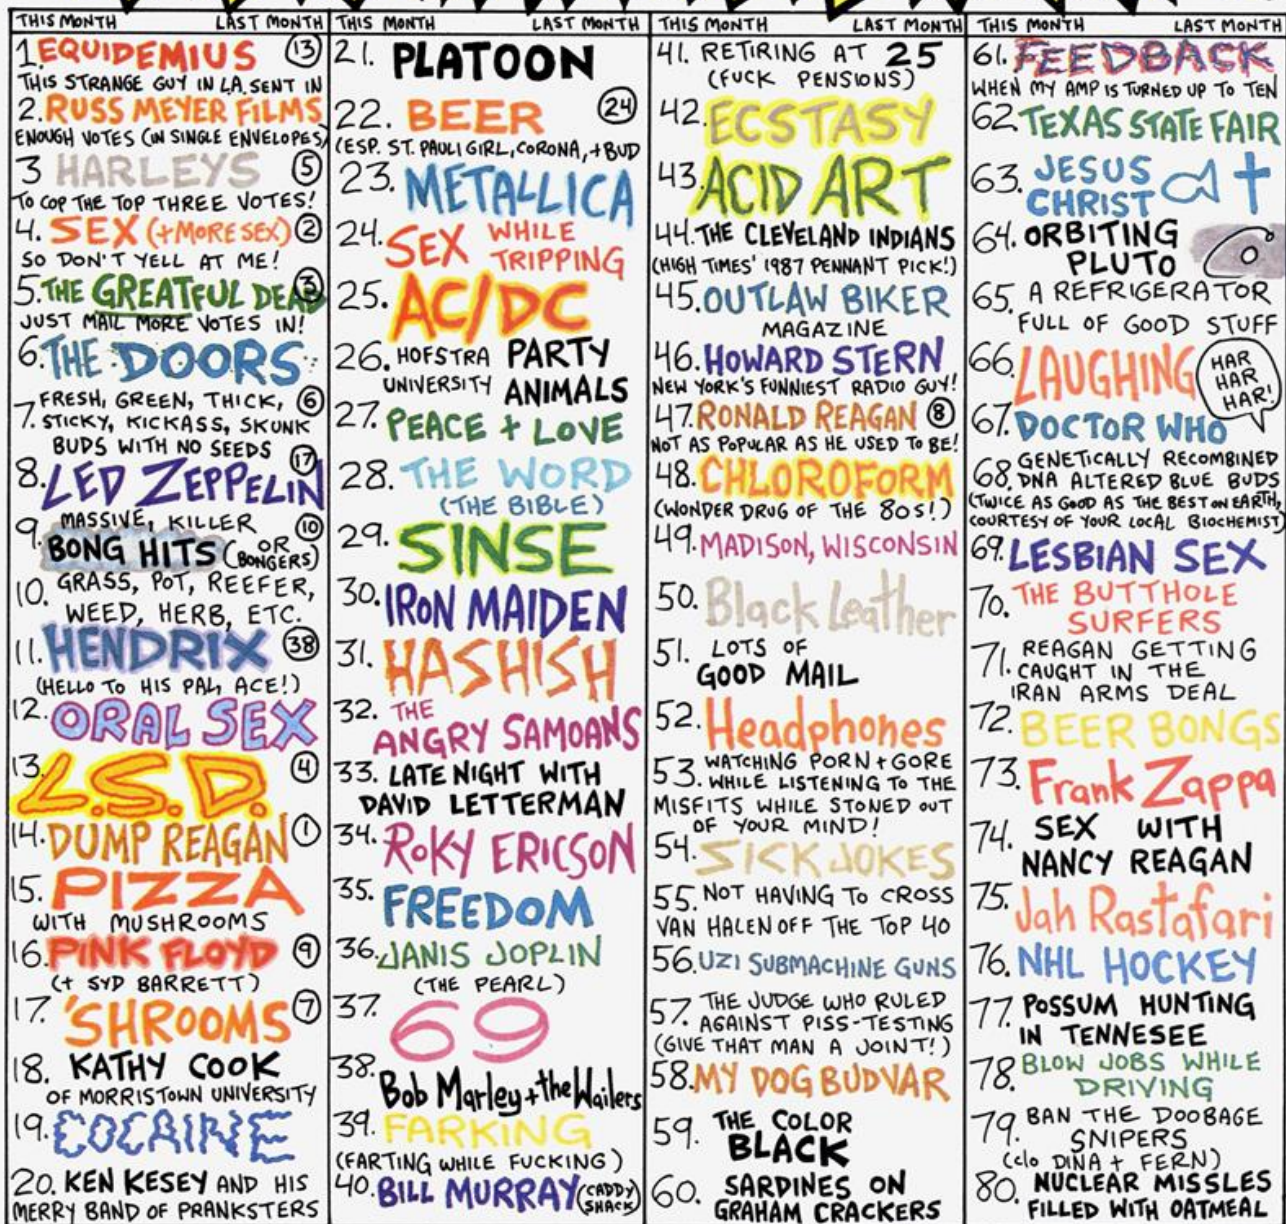 THIS MONTH LAST MONTH
1. EQUIDEMIUS 13
THIS STRANGE GUY IN L.A. SENT IN
2. RUSS MEYER FILMS
ENOUGH VOTES (IN SINGLE ENVELOPES)
3 HARLEYS 5
TO COP THE TOP THREE VOTES!
4. SEX (+ MORE SEX) 2
SO DON'T YELL AT ME!
5. THE GREATFUL DEAD 3
JUST MAIL MORE VOTES IN!
6. THE DOORS
7. FRESH, GREEN, THICK, 6
STICKY, KICKASS, SKUNK
BUDS WITH NO SEEDS
8. LED ZEPPELIN 17
9. MASSIVE, KILLER 10
BONG HITS (OR BONGERS)
10. GRASS, POT, REEFER,
WEED, HERB, ETC.
11. HENDRIX 38
(HELLO TO HIS PAL, ACE!)
12. ORAL SEX
13. L.S.D. 4
14. DUMP REAGAN 1
15. PIZZA
WITH MUSHROOMS
16. PINK FLOYD 9
(+ SYD BARRETT)
17. 'SHROOMS 7
18. KATHY COOK
OF MORRISTOWN UNIVERSITY
19. COCAINE
20. KEN KESEY AND HIS
MERRY BAND OF PRANKSTERS
THIS MONTH LAST MONTH
21. PLATOON
22. BEER 24
(ESP. ST. PAULI GIRL, CORONA, + BUD
23. METALLICA
24. SEX WHILE
TRIPPING
25. AC/DC
26. HOFSTRA PARTY
UNIVERSITY ANIMALS
27. PEACE + LOVE
28. THE WORD
(THE BIBLE)
29. SINSE
30. IRON MAIDEN
31. HASHISH
32. THE
ANGRY SAMOANS
33. LATE NIGHT WITH
DAVID LETTERMAN
34. ROKY ERICSON
35. FREEDOM
36. JANIS JOPLIN
(THE PEARL)
37. 69
38. Bob Marley + the Wailers
39. FARKING
(FARTING WHILE FUCKING)
40. BILL MURRAY (CADDY SHACK)
THIS MONTH LAST MONTH
41. RETIRING AT 25
(FUCK PENSIONS)
42. ECSTASY
43. ACID ART
44. THE CLEVELAND INDIANS
(HIGH TIMES' 1987 PENNANT PICK!)
45. OUTLAW BIKER
MAGAZINE
46. HOWARD STERN
NEW YORK'S FUNNIEST RADIO GUY!
47. RONALD REAGAN 8
NOT AS POPULAR AS HE USED TO BE!
48. CHLOROFORM
(WONDER DRUG OF THE 80s!)
49. MADISON, WISCONSIN
50. Black Leather
51. LOTS OF
GOOD MAIL
52. Headphones
53. WATCHING PORN + GORE
WHILE LISTENING TO THE
MISFITS WHILE STONED OUT
OF YOUR MIND!
54. SICK JOKES
55. NOT HAVING TO CROSS
VAN HALEN OFF THE TOP 40
56. UZI SUBMACHINE GUNS
57. THE JUDGE WHO RULED
AGAINST PISS-TESTING
(GIVE THAT MAN A JOINT!)
58. MY DOG BUDVAR
59. THE COLOR
BLACK
60. SARDINES ON
GRAHAM CRACKERS
THIS MONTH LAST MONTH
61. FEEDBACK
WHEN MY AMP IS TURNED UP TO TEN
62. TEXAS STATE FAIR
63. JESUS
CHRIST
64. ORBITING
PLUTO
65. A REFRIGERATOR
FULL OF GOOD STUFF
66. LAUGHING
HAR
HAR
HAR!
67. DOCTOR WHO
68. GENETICALLY RECOMBINED
DNA ALTERED BLUE BUDS
(TWICE AS GOOD AS THE BEST ON EARTH,
COURTESY OF YOUR LOCAL BIOCHEMIST)
69. LESBIAN SEX
70. THE BUTTHOLE
SURFERS
71. REAGAN GETTING
CAUGHT IN THE
IRAN ARMS DEAL
72. BEER BONGS
73. Frank Zappa
74. SEX WITH
NANCY REAGAN
75. Jah Rastafari
76. NHL HOCKEY
77. POSSUM HUNTING
IN TENNESEE
78. BLOW JOBS WHILE
DRIVING
79. BAN THE DOOBAGE
SNIPERS
(c/o DINA + FERN)
80. NUCLEAR MISSLES
FILLED WITH OATMEAL